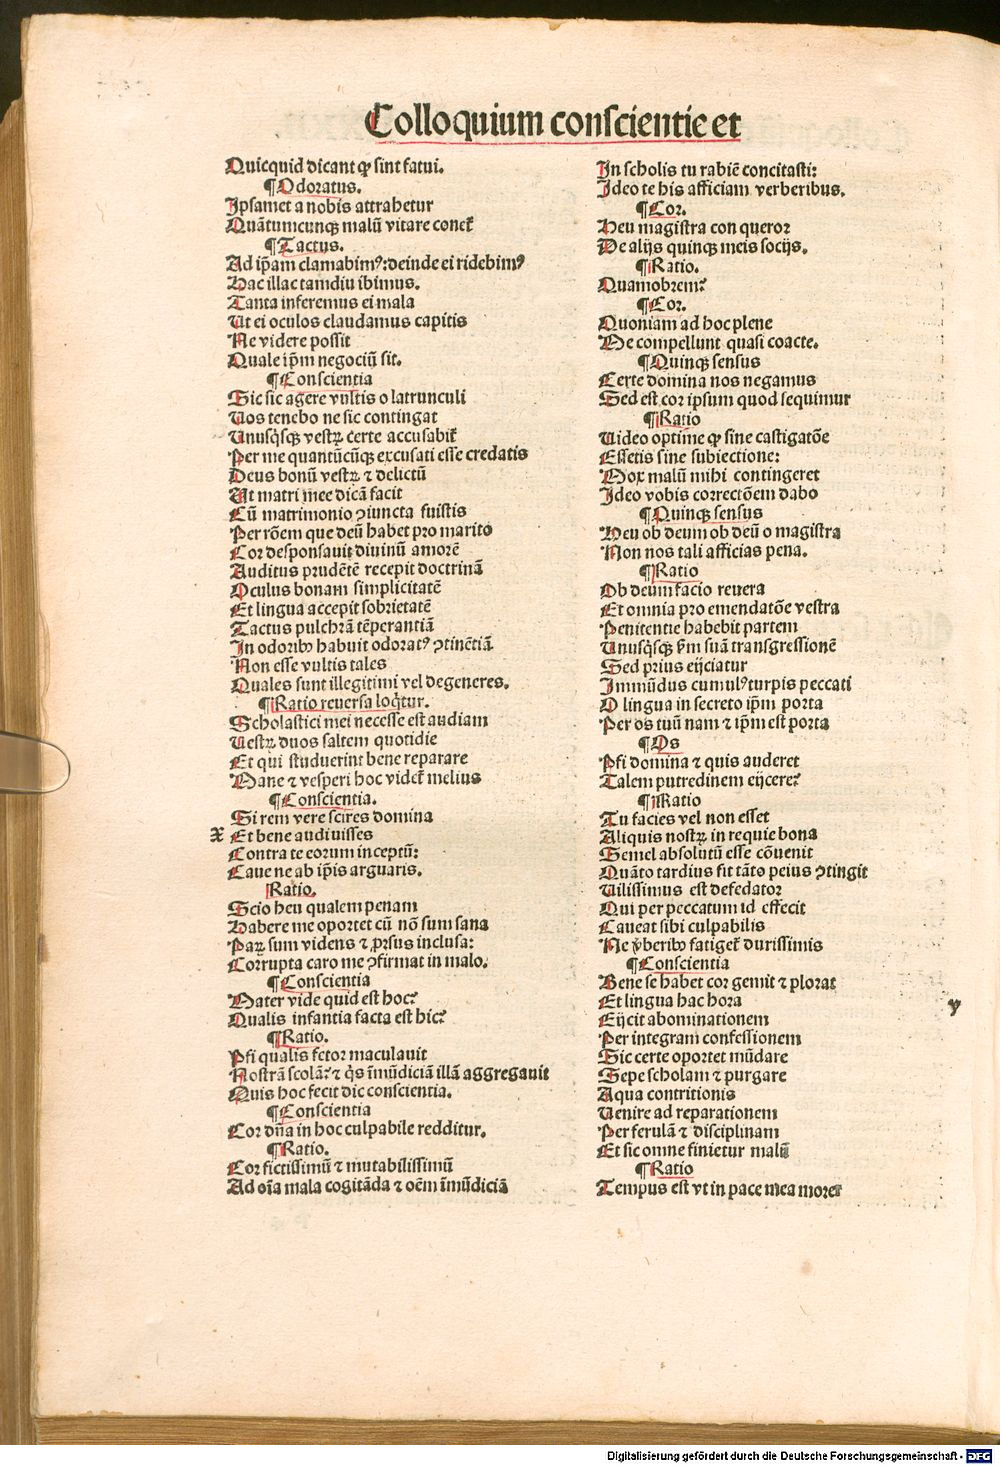 Colloquium conscientie et
Quicquid dicant ꝙ sint fatui.
¶Odoratus.
Ipsamet a nobis attrahetur
Quãtumcunqꝫ malũ vitare conet᷑
¶Tactus.
Ad ip̃am clamabimꝰ:deinde ei ridebimꝰ
Hac illac tamdiu ibimus.
Tanta inferemus ei mala
Ut ei oculos claudamus capitis
Ne videre possit
Quale ip̃m negociũ sit.
¶Conscientia
Sic sic agere vultis o latrunculi
Uos tenebo ne sic contingat
Unusq̃sqꝫ vestꝝ certe accusabit᷑
Per me quantũcũqꝫ excusati esse credatis
Deus bonũ vestꝝ ⁊ delictũ
Ut matri mee dicã facit
Cũ matrimonio ꝯiuncta fuistis
Per rõem que deũ habet pro marito
Cor desponsauit diuinũ amorẽ
Auditus prudẽtẽ recepit doctrinã
Oculus bonam simplicitatẽ
Et lingua accepit sobrietatẽ
Tactus pulchrã tẽperantiã
In odoribꝰ habuit odoratꝰ ꝯtinẽtiã
Non esse vultis tales
Quales sunt illegitimi vel degeneres.
¶Ratio reuersa loq̃tur.
Scholastici mei necesse est audiam
Uestꝝ duos saltem quotidie
Et qui studuerint bene reparare
Mane ⁊ vesperi hoc videt᷑ melius
¶Conscientia.
Si rem vere scires domina
X Et bene audiuisses
Contra te eorum inceptũ:
Caue ne ab ip̃is arguaris.
Ratio.
Scio heu qualem penam
Habere me oportet cũ nõ sum sana
Paꝝ sum videns ⁊ ꝓrsus inclusa:
Corrupta caro me ꝯfirmat in malo.
¶Conscientia
Mater vide quid est hoc?
Qualis infantia facta est hic?
¶Ratio.
Pfi qualis fetor maculauit
Nostrã scolã? ⁊ q̃s im̃ũdiciã illã aggregauit
Quis hoc fecit dic conscientia.
¶Conscientia
Cor dña in hoc culpabile redditur.
¶Ratio.
Cor fictissimũ ⁊ mutabilissimũ
Ad oĩa mala cogitãda ⁊ oẽm im̃ũdiciã
In scholis tu rabiẽ concitasti:
Ideo te his afficiam verberibus.
¶Cor.
Heu magistra con queror
De alijs quinqꝫ meis socijs.
¶Ratio.
Quamobrem?
¶Cor.
Quoniam ad hoc plene
Me compellunt quasi coacte.
¶Quinqꝫ sensus
Certe domina nos negamus
Sed est cor ipsum quod sequimur
¶Ratio
Uideo optime ꝙ sine castigatõe
Essetis sine subiectione:
Mox malũ mihi contingeret
Ideo vobis correctõem dabo
¶Quinqꝫ sensus
Heu ob deum ob deũ o magistra
Non nos tali afficias pena.
¶Ratio
Ob deum facio reuera
Et omnia pro emendatõe vestra
Penitentie habebit partem
Unusq̃sqꝫ ẜm suã transgressionẽ
Sed prius eijciatur
Immũdus cumulꝰ turpis peccati
O lingua in secreto ip̃m porta
Per os tuũ nam ⁊ ip̃m est porta
¶Os
Pfi domina ⁊ quis auderet
Talem putredinem eijcere?
¶Ratio
Tu facies vel non esset
Aliquis nostꝝ in requie bona
Semel absolutũ esse cõuenit
Quãto tardius fit tãto peius ꝯtingit
Uilissimus est defedator
Qui per peccatum id effecit
Caueat sibi culpabilis
Ne v̾beribꝰ fatiget᷑ durissimis
¶Conscientia
Bene se habet cor gemit ⁊ plorat
Et lingua hac hora
y
Eijcit abominationem
Per integram confessionem
Sic certe oportet mũdare
Sepe scholam ⁊ purgare
Aqua contritionis
Uenire ad reparationem
Per ferulã ⁊ disciplinam
Et sic omne finietur malũ
¶Ratio
Tempus est vt in pace mea morer
Digitalisierung gefördert durch die Deutsche Forschungsgemeinschaft - DFG